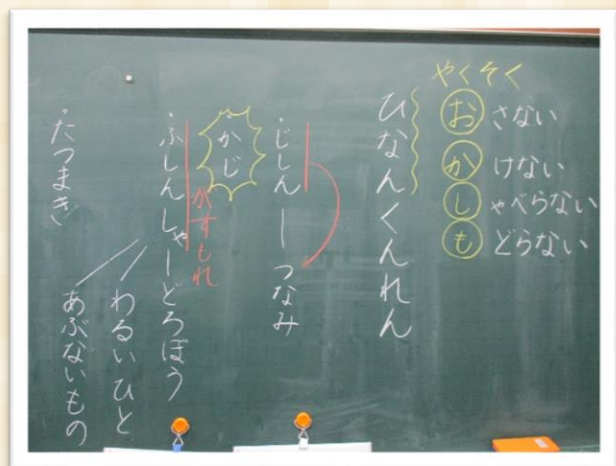 やくそく
おさない
かけない
しゃべらない
もどらない
ひなんくんれん
・じしん ー つなみ
・かじ
がすもれ
・ふしんしゃーどろぼう
わるいひと
あぶないもの
・たつまき